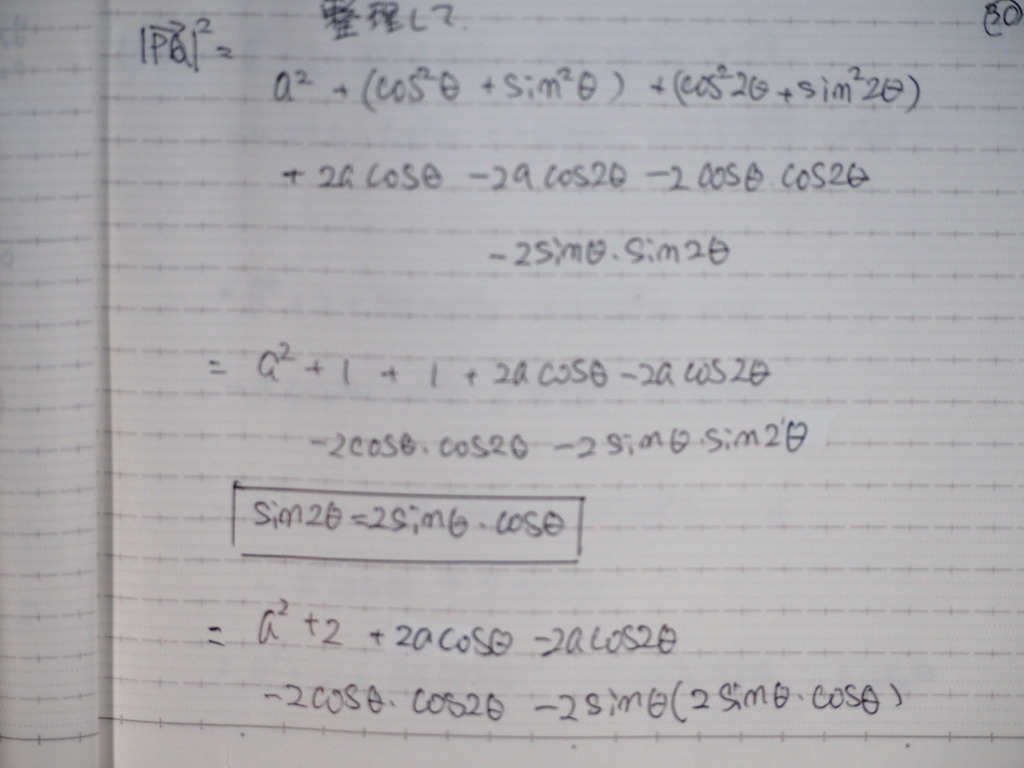 整理して. (30)
|PQ|² =
a² + (cos²θ + sin²θ) + (cos²2θ + sin²2θ)
+ 2a cosθ - 2a cos2θ - 2 cosθ・cos2θ
- 2sinθ・sin2θ
= a² + 1 + 1 + 2a cosθ - 2a cos2θ
- 2cosθ・cos2θ - 2 sinθ・sin2θ
sin2θ = 2sinθ・cosθ
= a² + 2 + 2a cosθ - 2a cos2θ
- 2cosθ・cos2θ - 2 sinθ(2 sinθ・cosθ)